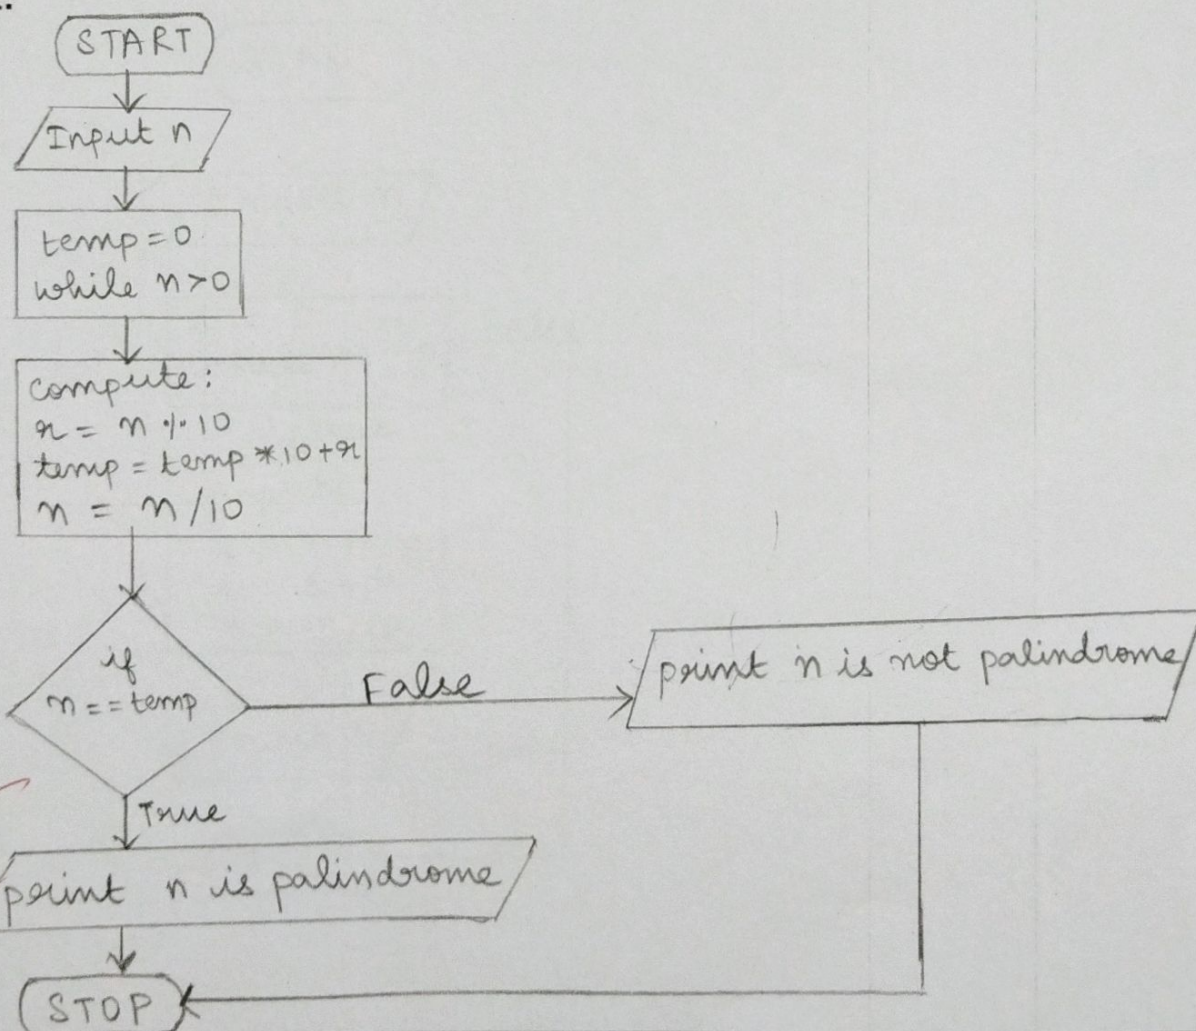 START
Input n
temp = 0
while n>0
compute:
r = n % 10
temp = temp * 10 + r
n = n / 10
if
n == temp
False
print n is not palindrome
True
print n is palindrome
STOP